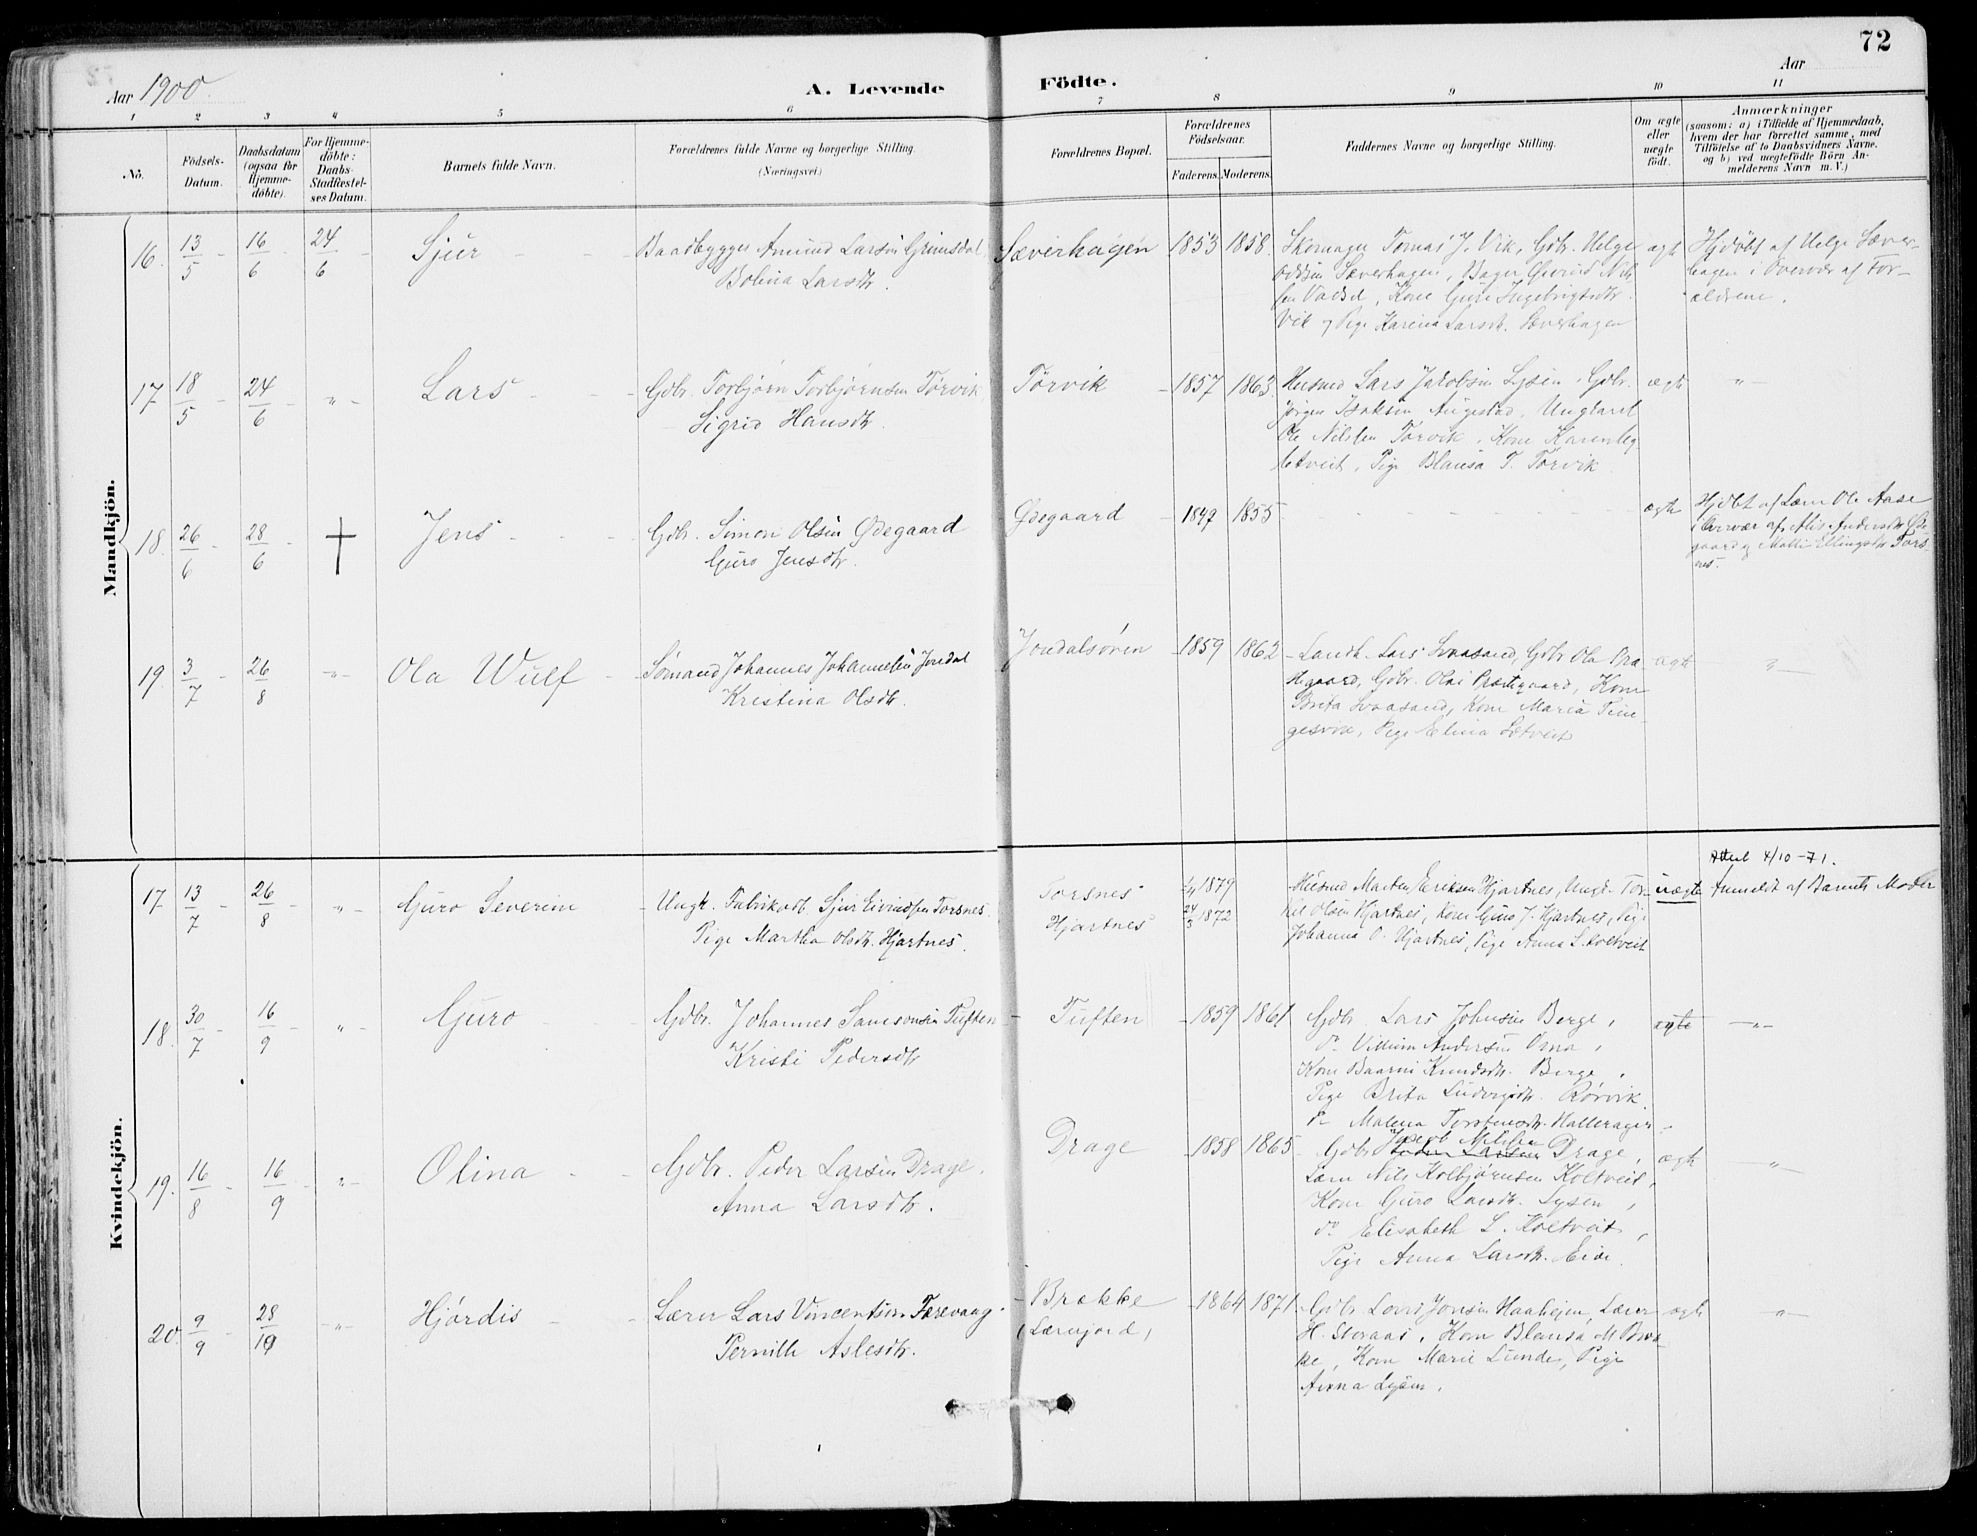 72
Aar 1900.
A. Levende Födte.
Aar
1 2 3 4 5 6 7 8 9 10 11
No.
Födsels-
Datum.
Daabsdatum
(ogsaa for
Hjemme-
döbte).
For Hjemme-
döbte:
Daabs-
Stadfæstel-
ses Datum.
Barnets fulde Navn.
Forældrenes fulde Navne og borgerlige Stilling.
(Næringsvei.)
Forældrenes Bopæl.
Forældrenes
Födselsaar.
Faderens. Moderens.
Faddernes Navne og borgerlige Stilling.
Om ægte
eller
uægte
födt.
Anmærkninger
(saasom: a) i Tilfælde af Hjemmedaab,
hvem der har forrettet samme, med
Tilföielse af to Daabsvidners Navne,
og b) ved uægtefödte Börn An-
melderens Navn m. V.)
Mandkjön.
16. 13/5 16/6 24/6 Sjur
Baadbygger Amund Larsen Grimsdal
Bolina Larsdtr.
Sæverhagen 1853 1858.
Skomager Tomas J. Vik, Gdbr. Helge
Sæverhagen, Bager Øivind Nils
sen Vadsel, Kone Guro Ingebrigtsdtr.
Vik og Pige Karina Larsdtr. Sæverhagen
ægte
Hjdøbt af Helge Sæver-
hagen i Overvær af For-
ældrene.
17 18/5 24/6 " Lars
Gdbr. Torbjørn Torbjørnsen Tørvik
Sigrid Hansdtr.
Tørvik 1857 1863.
Husmd Lars Jakobsen Lysen, Gdbr.
Jørgen Isaksen Augestad, Ungkarl
Ole Nilssen Tørvik, Kone Karen
Pige Blansa T. Tørvik
ægte "
18. 26/6 28/6 † Jens
Gdbr. Simon Olsen Ødegaard
Guro Jensdtr.
Ødegaard 1847 1855
ægte
Hjdøbt af Lærer Ole Aase
i Overvær af Andersdtr. Øde
gaard og Ellingsdtr. Tors
nes.
19 3/7 26/8 " Ola Wulf
Sømand Johannes Johannesen Jondal
Kristina Olsdtr.
Jondalsøren 1859 1862
Landh. Lars Svaasand, Gdbr Ola Præ
stegaard, Gdbr. Olai Præstegaard, Kone
Brita Svaasand, Kone Maria
Pige Elina
ægte "
Kvindekjön.
17. 13/7 26/8 " Guro Severine
Ungk. Fabrikarb. Sjur Eivindsen Torsnes.
Pige Martha Olsdtr. Hjartnes.
Torsnes
Hjartnes
1879
24/3 1872
Husmd Marten Eriksen Hjartnes, Ungk. Tor-
kel Olsen Hjartnes, Kone Guro J. Hjartnes, Pige
Johanna O. Hjartnes, Pige Anna L. Koltveit
uægte
Attest 4/10-71.
Anmeldt af Barnets Moder
18. 30/7 16/9 " Guro
Gdbr. Johannes Samsonsen Tuften
Kristi Pedersdtr
Tuften 1859 1861
Gdbr Lars Johnsen Berge,
do Villum Andersen
Kone Baarni Knudsdtr. Berge,
Pige Brita Ludvigsdtr. Rørvik
do Malena Torstensdtr. Hallerager
ægte "
19. 16/8 16/9 " Olina
Gdbr. Peder Larsen Drage.
Anna Larsdtr.
Drage 1858 1865
Jacob Nilsen
Gdbr Peder Larsen Drage,
Lærer Nils Kolbjørnsen Koltveit,
Kone Guro Larsdtr. Lysen,
do Elisabeth L. Koltveit,
Pige Anna Larsdtr. Eide.
ægte "
20. 9/9 28/10 " Hjørdis
Lærer Lars Vincentsen Færevaag
Pernille Aslesdtr.
Brække
1864 1871
Gdbr Lars Jonsen Haahejen, Lærer
H. Storaas, Kone Blansa M Bræ
ke, Kone Marie Lunde, Pige
Anna Lysen.
ægte "